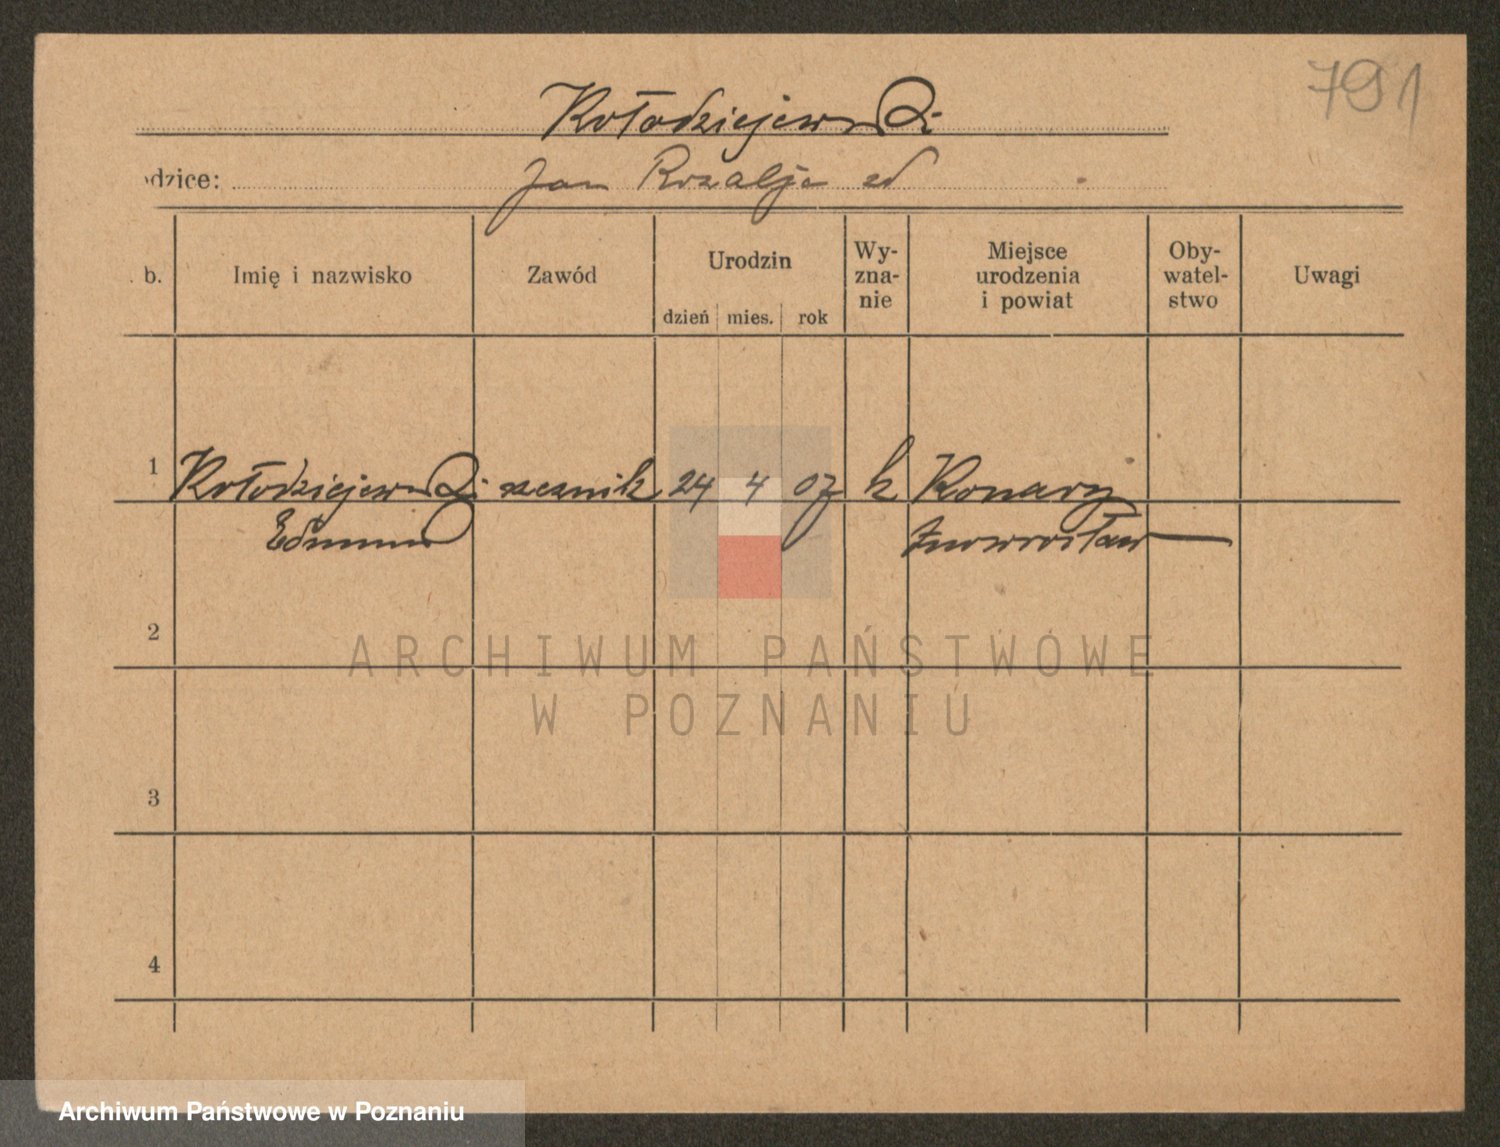 791
Kołodziejewski
odzice: Jan Rozalja zd
b. Imię i nazwisko Zawód Urodzin dzień mies. rok Wy-zna-nie Miejsce urodzenia i powiat Oby-watel-stwo Uwagi
1 Kołodziejewski 24 4 07 k Konary
Edmund Inowrocław
2
ARCHIWUM PAŃSTWOWE
W POZNANIU
3
4
Archiwum Państwowe w Poznaniu